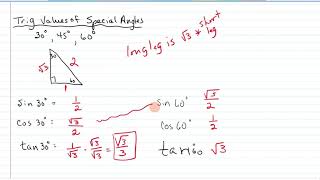 Trig Values of Special Angles
30°, 45°, 60°
long leg is √3 * short leg
30
√3
2
60
1
sin 30° = 1/2
cos 30° = √3/2
tan 30° = 1/√3 · √3/√3 = √3/3
sin 60° √3/2
cos 60° 1/2
tan 60 √3